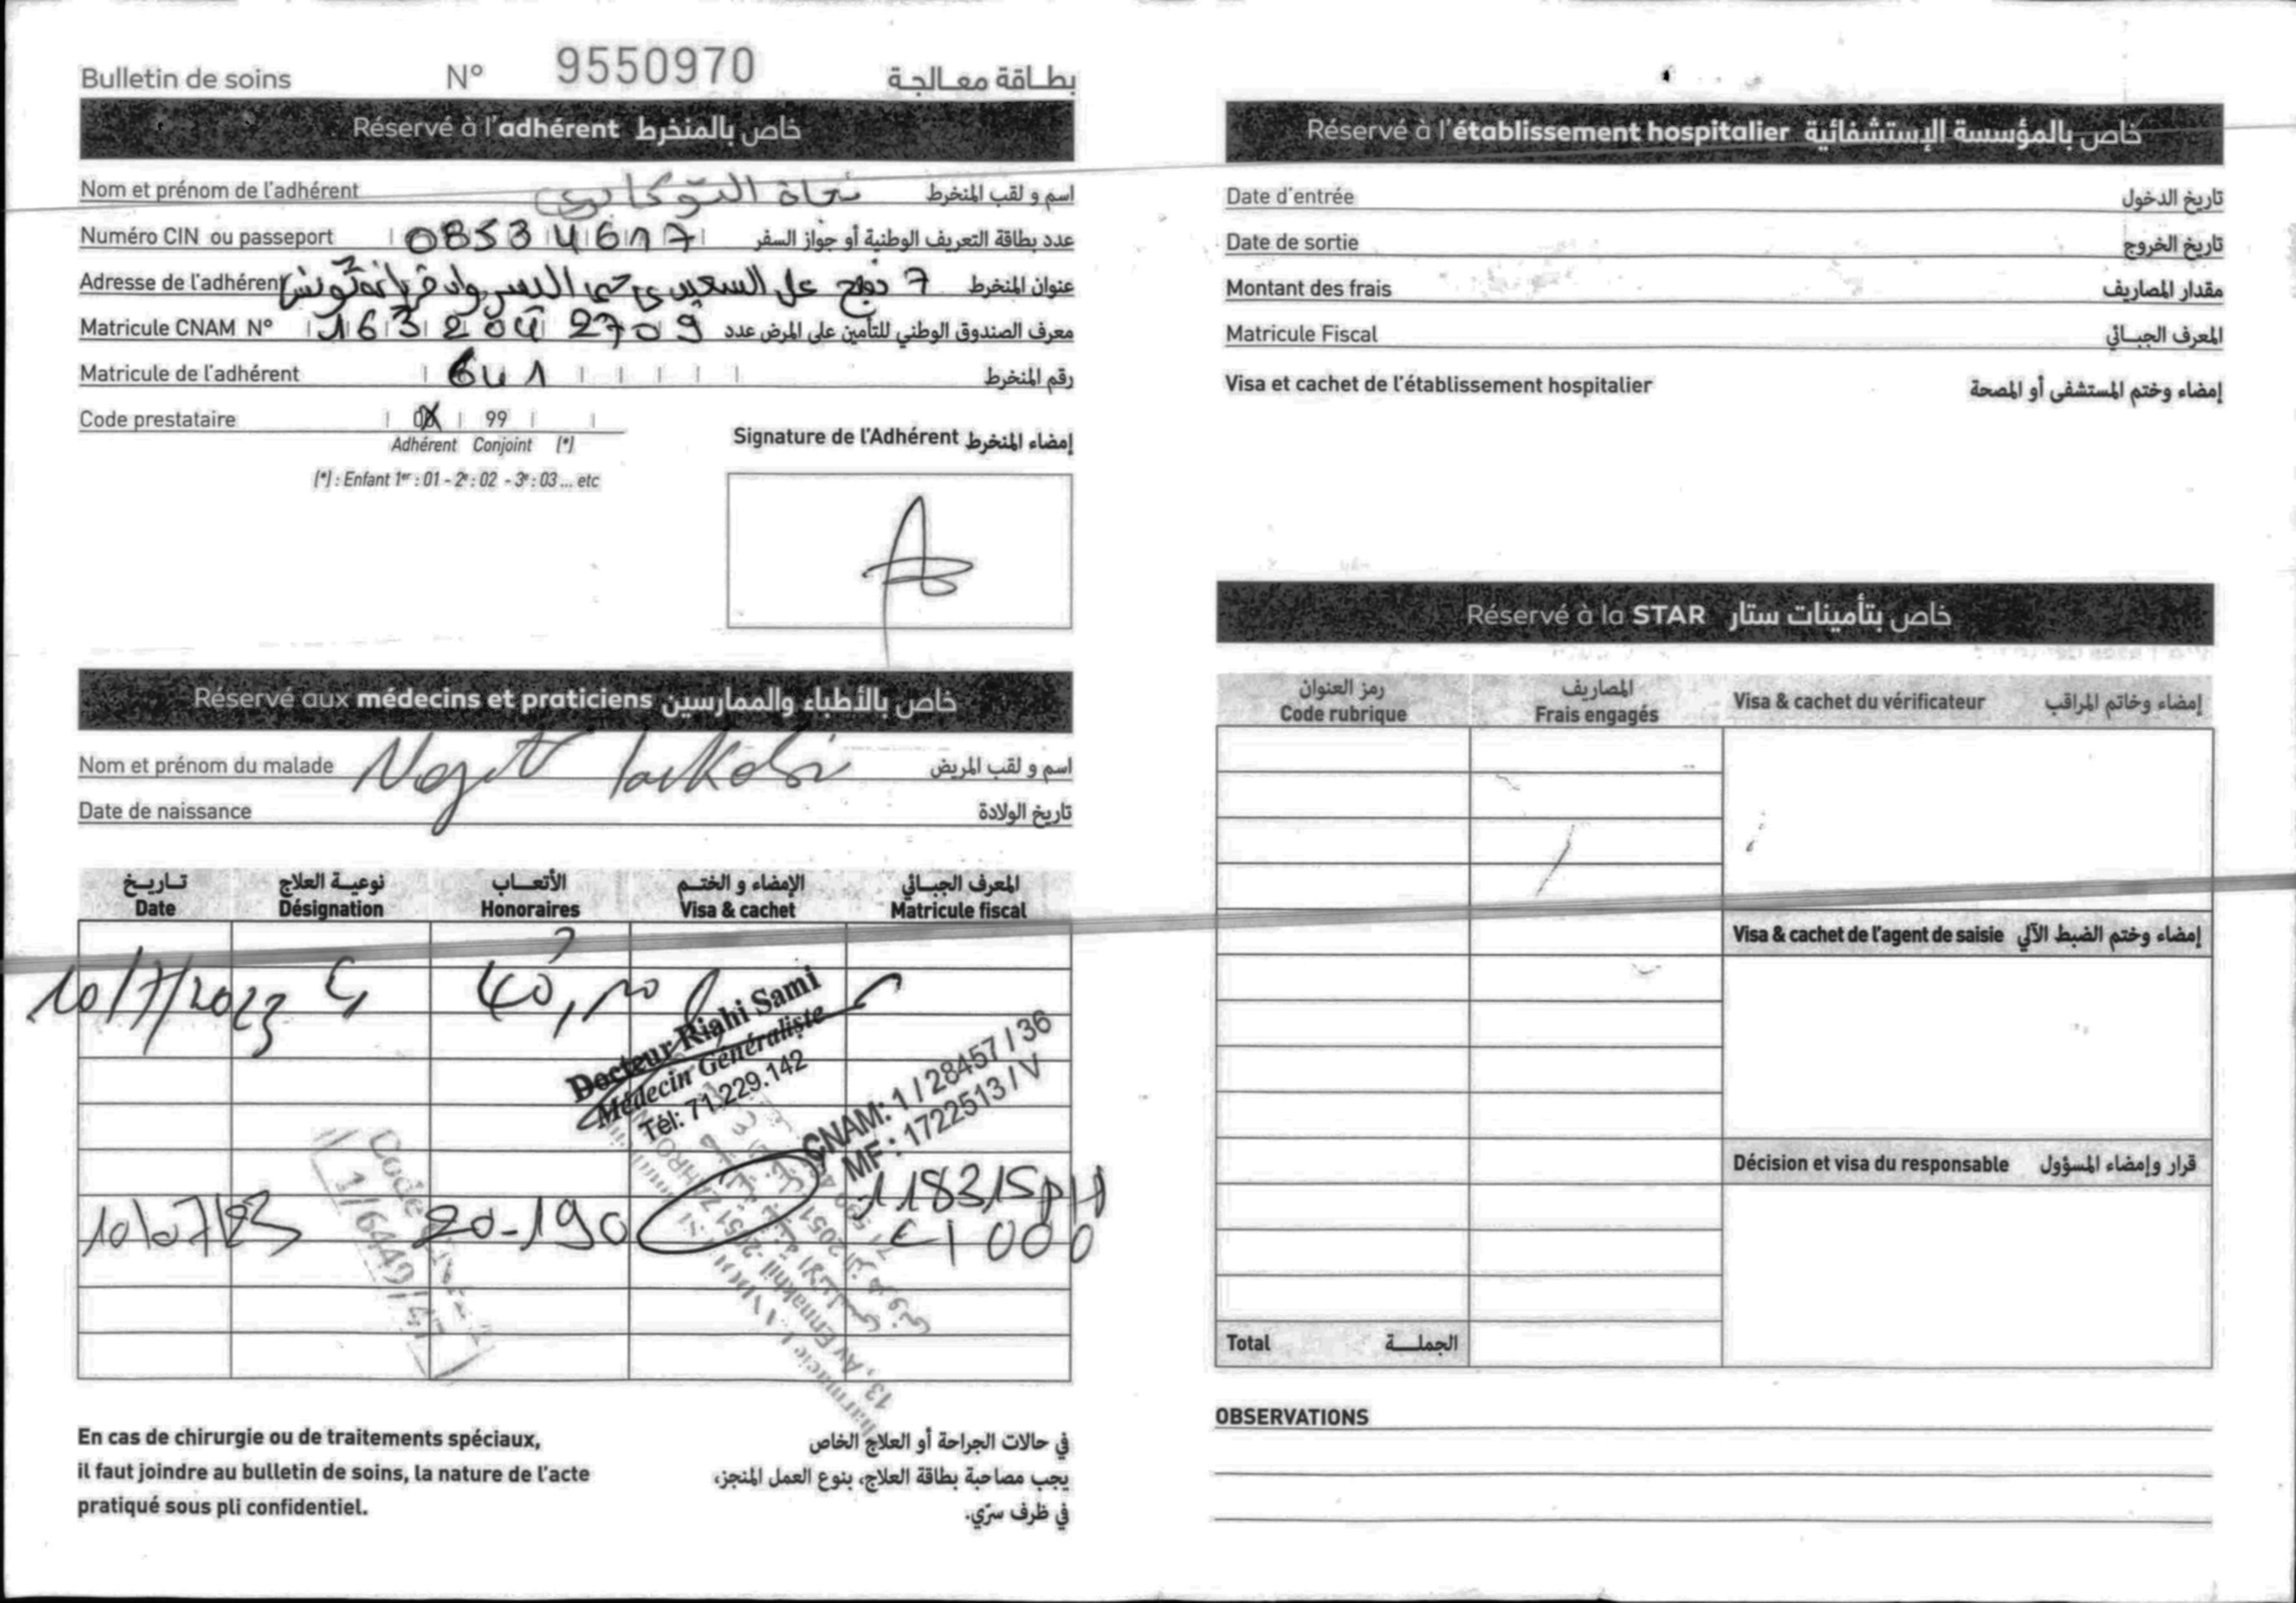 Bulletin de soins N° 9550970 بطاقة معالجة
Réservé à l'adhérent خاص بالمنخرط
Nom et prénom de l'adhérent نجاة التوكابري اسم و لقب المنخرط
Numéro CIN ou passeport 08534617 عدد بطاقة التعريف الوطنية أو جواز السفر
Adresse de l'adhérent 7 نهج علي السعيدي حي اليسر تونس عنوان المنخرط
Matricule CNAM N° 1632042709 معرف الصندوق الوطني للتأمين على المرض عدد
Matricule de l'adhérent 641 رقم المنخرط
Code prestataire 99
Adhérent Conjoint (*)
(*) : Enfant 1er : 01 - 2e : 02 - 3e : 03 ... etc
Signature de l'Adhérent إمضاء المنخرط
Réservé aux médecins et praticiens خاص بالأطباء والممارسين
Nom et prénom du malade Nejet اسم و لقب المريض
Date de naissance تاريخ الولادة
تاريخ نوعية العلاج الأتعاب الإمضاء و الختم المعرف الجبائي
Date Désignation Honoraires Visa & cachet Matricule fiscal
10/7/2023 C 40,
Docteur Riahi Sami
Médecin Généraliste
Tél: 71.229.142
CNAM: 1 / 28457 / 36
MF : 1722513 / V
10/07/23 20-190 118315PH
1000
Code
1/6449/
13, Av Ennakhil
En cas de chirurgie ou de traitements spéciaux,
il faut joindre au bulletin de soins, la nature de l'acte
pratiqué sous pli confidentiel.
في حالات الجراحة أو العلاج الخاص
يجب مصاحبة بطاقة العلاج، بنوع العمل المنجز،
في ظرف سرّي.
Réservé à l'établissement hospitalier خاص بالمؤسسة الإستشفائية
Date d'entrée تاريخ الدخول
Date de sortie تاريخ الخروج
Montant des frais مقدار المصاريف
Matricule Fiscal المعرف الجبائي
Visa et cachet de l'établissement hospitalier إمضاء وختم المستشفى أو المصحة
Réservé à la STAR خاص بتأمينات ستار
رمز العنوان المصاريف
Code rubrique Frais engagés Visa & cachet du vérificateur إمضاء وخاتم المراقب
Visa & cachet de l'agent de saisie إمضاء وختم الضبط الآلي
Décision et visa du responsable قرار وإمضاء المسؤول
Total الجملة
OBSERVATIONS